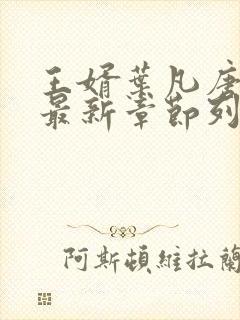 王婿葉凡唐
最新章節列
阿斯頓維拉蘭